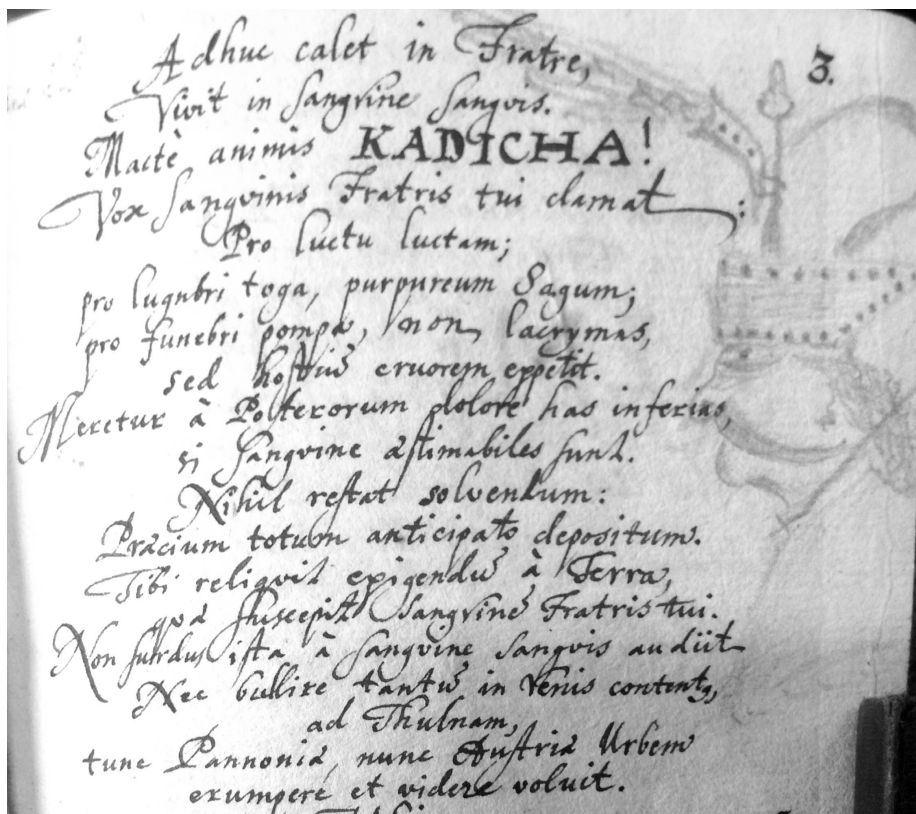 3.
Adhuc calet in Fratre,
Vivit in sangvine sangvis.
Macte animis KADICHA!
Vox sangvinis Fratris tui clamat:
Pro luctu luctam;
pro lugubri toga, purpureum Sagum;
pro funebri pompa, non lacrymas,
sed hostiū cruorem expetit.
Meretur à Posterorum dolore has inferias,
si sangvine æstimabiles sunt.
Nihil restat solvendum:
Præcium totum anticipato depositum.
Tibi reliquit exigendū à Terra,
quæ suscepit sangvinē Fratris tui.
Non surdus ista à sangvine sangvis audiit
Nec bullire tantū in Venis contentꝰ,
ad Thulnam,
tunc Pannoniæ, nunc Austriæ Urbem
erumpere et videre voluit.